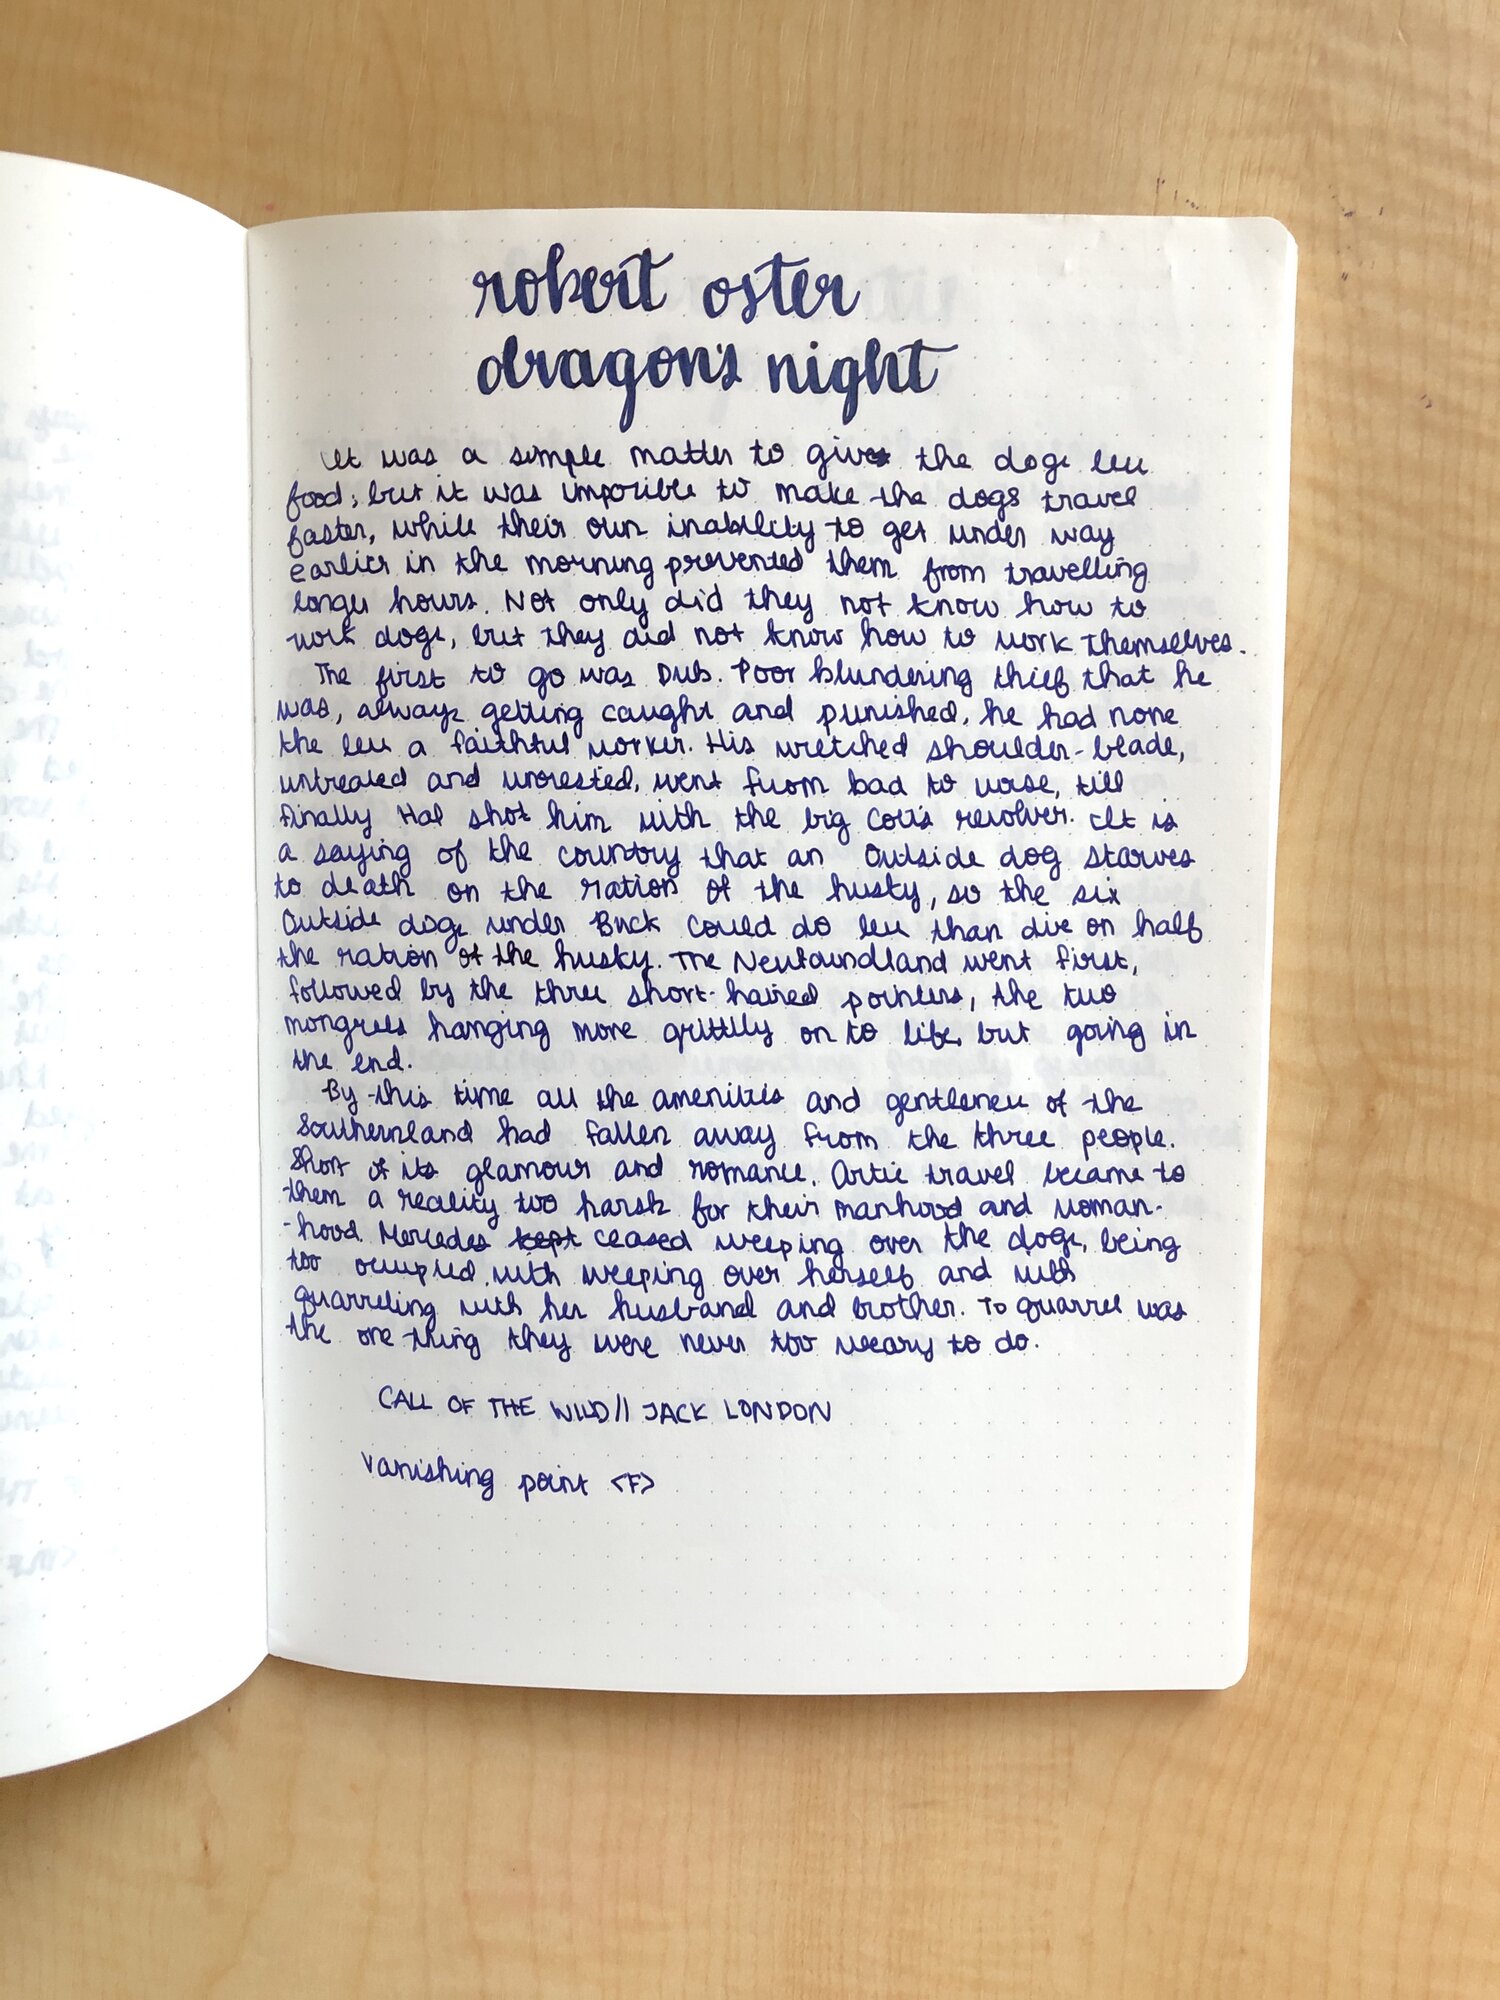 robert oster
dragon's night
It was a simple matter to give the dogs less
food; but it was impossible to make the dogs travel
faster, while their own inability to get under way
earlier in the morning prevented them from travelling
longer hours. Not only did they not know how to
work dogs, but they did not know how to work themselves.
The first to go was Dub. Poor blundering thief that he
was, always getting caught and punished, he had none
the less a faithful worker. His wretched shoulder-blade,
untreated and unrested, went from bad to worse, till
finally Hal shot him with the big Colt's revolver. It is
a saying of the country that an Outside dog starves
to death on the ration of the husky, so the six
Outside dogs under Buck could do less than die on half
the ration of the husky. The Newfoundland went first,
followed by the three short-haired pointers, the two
mongrels hanging more grittily on to life, but going in
the end.
By this time all the amenities and gentleness of the
Southernland had fallen away from the three people.
Shorn of its glamour and romance, Artic travel became to
them a reality too harsh for their manhood and woman-
-hood. Mercedes kept ceased weeping over the dogs, being
too ocupied with weeping over herself and with
quarreling with her husband and brother. To quarrel was
the one thing they were never too weary to do.
CALL OF THE WILD // JACK LONDON
Vanishing point <F>